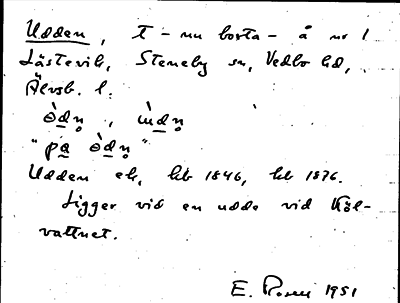 Udden, T - nu borta - å nr 1
Låstevik, Steneby sn, Vedbo hd,
Älvsb. l.
òdn̥, ùdn̥
"pa òdn̥"
Udden ek, hb 1846, hb 1876.
Ligger vid en udde vid
vattnet.
E. Rosell 1951